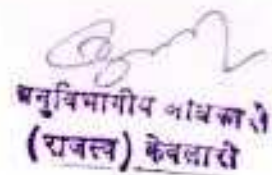 अनुविभागीय अधिकारी
(राजस्व) केवलारी